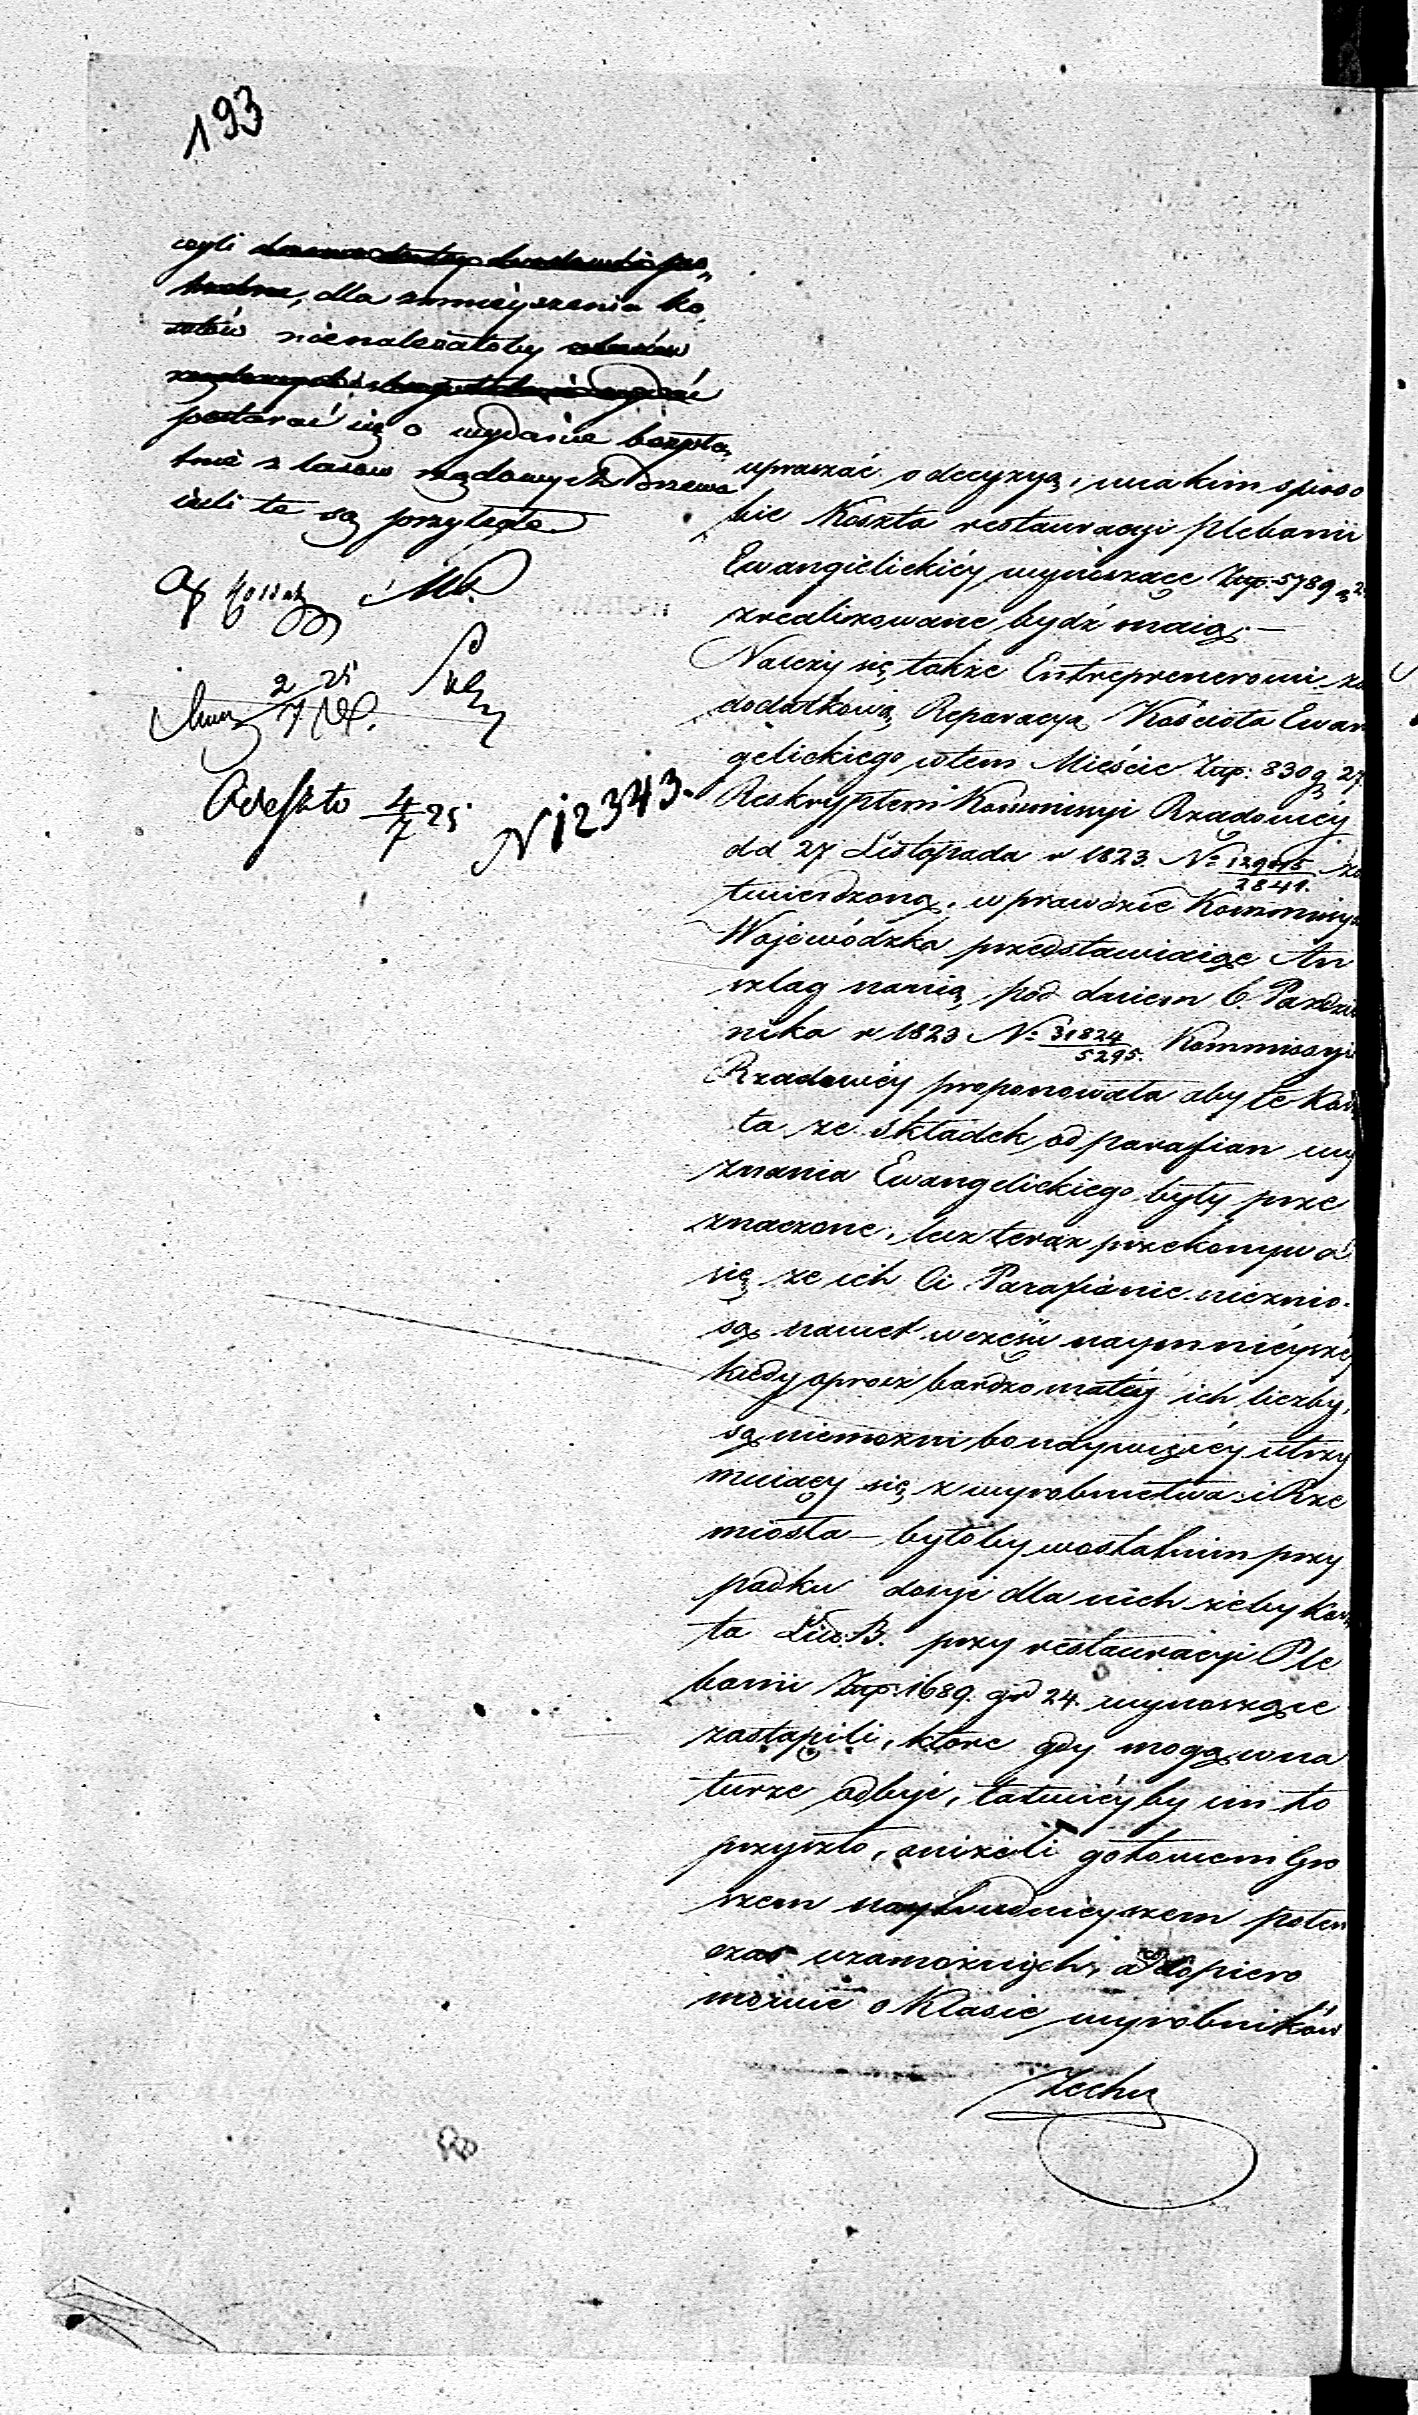 193
czyli
dla zmnieyszenia ko
sztów nienależałoby
postarać się o wydanie bezpła
tnie z lasów rządowych drzewa
ieśli te są przyległe
2 25
7
Odeszło 4/7 25
N 12343.
upraszać o decyzyą, w iakim sposo
bie Koszta restauracyi Plebanii
Ewangielickiéy wynoszące Złp: 5789 g 2
zrealizowane bydź maią. —
Należy się także Entreprenerowi za
dodatkową Reparacyą Kościoła Ewan
gelickiego w tem Mieście Złp: 830 g 27.
Reskryptem Kommissyi Rządowéy
dd 27 Listopada r 1823. No 129015/2841. za
twierdzoną, wprawdzie Kommissya
Wojewódzka przedstawiaiąc An
szlag na nią pod dniem 6. Paździe
nika r 1823 No 31824/5295. Kommissyi
Rządowéy proponowała aby te Kosz
ta ze składek od parafian wy
znania Ewangelickiego były prze
znaczone, lecz teraz przekonywa
się że ich Ci Parafianie nieznio
są nawet w części naymnieyszéy
kiedy oprócz bardzo małéy ich liczby,
są niemożni bo naywięcéy utrzy
muiący się z wyrobnictwa i Rze
miosła — byłoby w ostatnim przy
padku dosyć dla nich żeby Kosz
ta Lit: B. przy restauracyi Ple
banii Złp: 1689. gr 24. wynoszące
zastąpili, które gdy mogą w na
turze odbyć, łatwiéyby im to
przyszło, aniżeli gotowem Gro
szem naytrudnieyszem poten
czas u zamożnych, a dopiero
mówić o Klasie wyrobników
Zechy